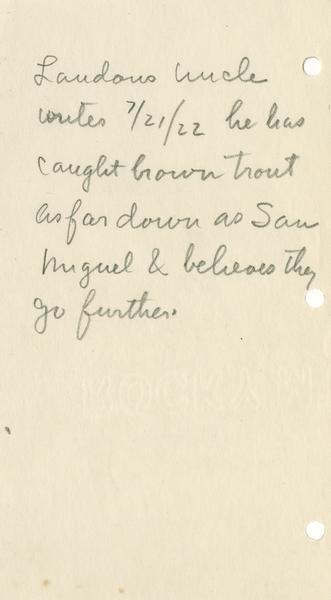 Landons Uncle
writes 7/21/22 he has
caught brown trout
as far down as San
Miguel & believes they
go further.